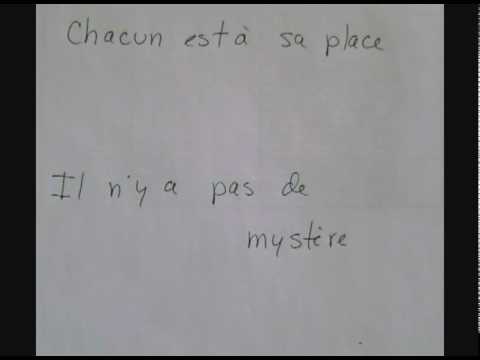 Chacun est à sa place
Il n'y a pas de
mystère